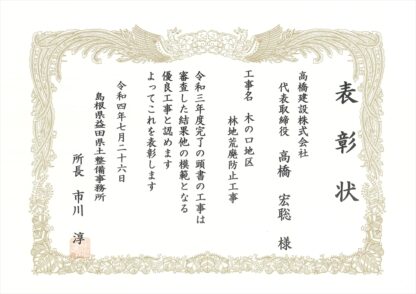 表彰状
高橋建設株式会社
代表取締役 高橋 宏聡 様
工事名 木の口地区
林地荒廃防止工事
令和三年度完了の頭書の工事は
審査した結果他の模範となる
優良工事と認めます
よってこれを表彰します
令和四年七月二十六日
島根県益田県土整備事務所
所長 市川 淳